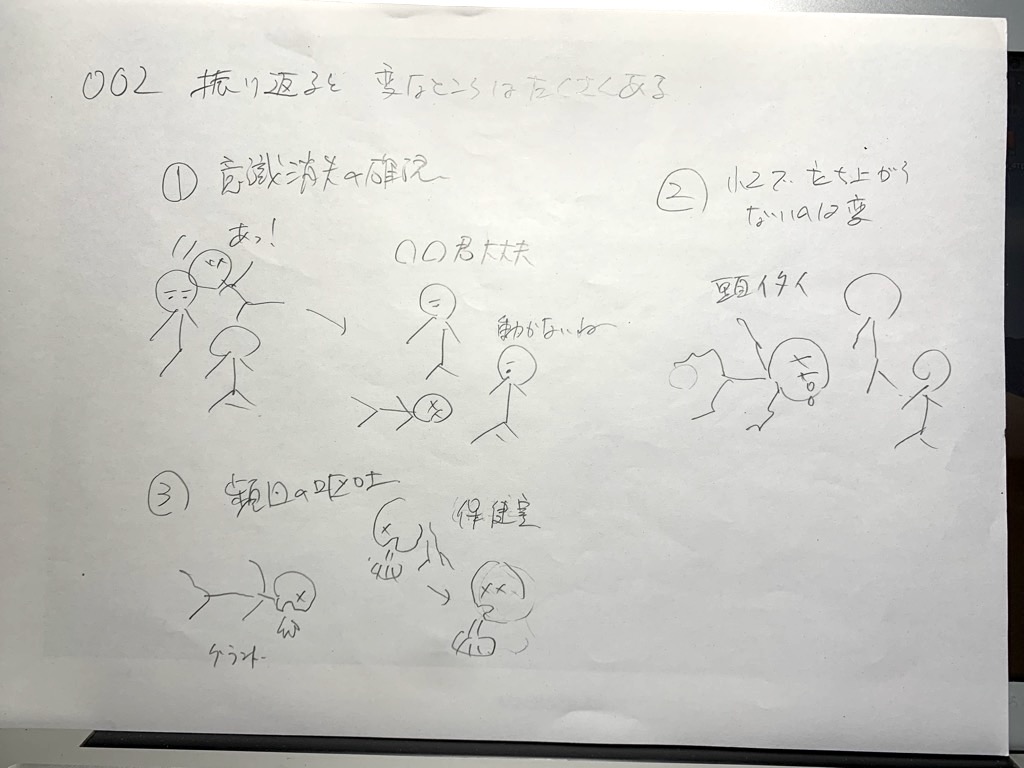 002 振り返ると 変なところはたくさんある
① 意識消失の確認
あっ!
〇〇君大丈夫
動かないね
② 小2で 立ち上がら
ないのは変
頭イタイ
③ 頻回の嘔吐
保健室
グランド